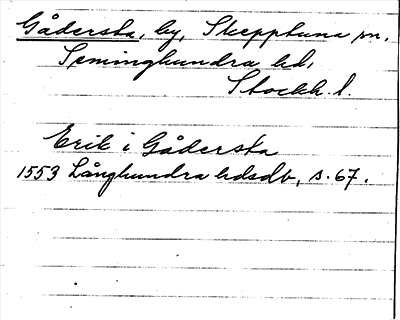 Gådersta, by, Skepptuna sn.
Seminghundra hd,
Stockh. l.
Erik i Gådersta
1553 Långhundra hdsdb, s. 67.